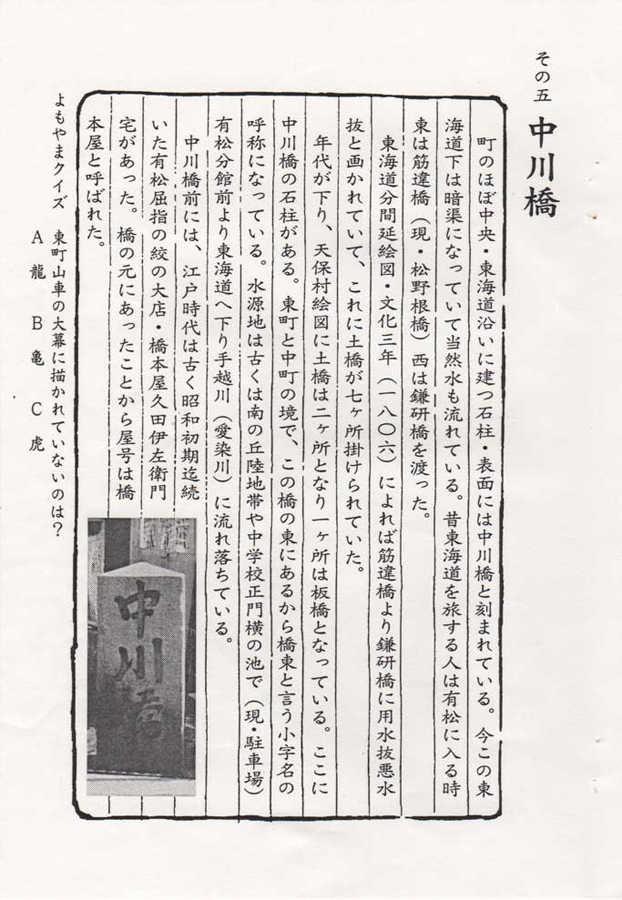 その五　中川橋
町のほぼ中央・東海道沿いに建つ石柱・表面には中川橋と刻まれている。今この東
海道下は暗渠になっていて当然水も流れている。昔東海道を旅する人は有松に入る時
東は筋違橋（現・松野根橋）西は鎌研橋を渡った。
東海道分間延絵図・文化三年（一八〇六）によれば筋違橋より鎌研橋に用水抜悪水
抜と画かれていて、これに土橋が七ヶ所掛けられていた。
年代が下り、天保村絵図に土橋は二ヶ所となり一ヶ所は板橋となっている。ここに
中川橋の石柱がある。東町と中町の境で、この橋の東にあるから橋東と言う小字名の
呼称になっている。水源地は古くは南の丘陸地帯や中学校正門横の池で（現・駐車場）
有松分館前より東海道へ下り手越川（愛染川）に流れ落ちている。
中川橋前には、江戸時代は古く昭和初期迄続
いた有松屈指の絞の大店・橋本屋久田伊左衛門
宅があった。橋の元にあったことから屋号は橋
本屋と呼ばれた。
中川橋
よもやまクイズ　東町山車の大幕に描かれていないのは？
A 龍　B 亀　C 虎